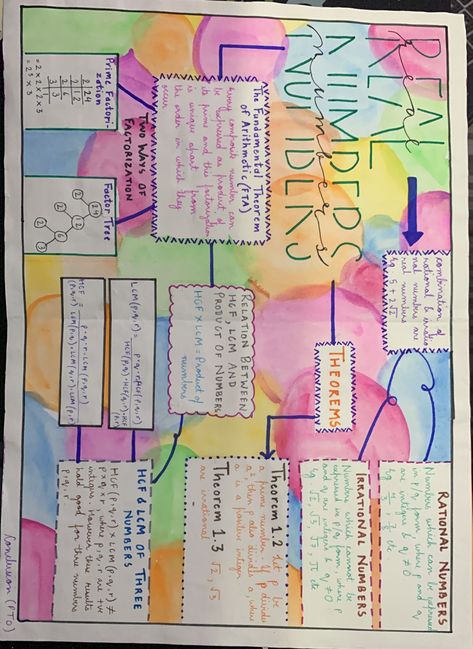 REAL
NUMBERS
real
numbers
combination of
rational & irratio-
nal numbers are
real numbers
eg. 5 + 2√2
RATIONAL NUMBERS
Numbers which can be expressed
in p/q form, where p and q
are integers & q ≠ 0
IRRATIONAL NUMBERS
Numbers which cannot be
expressed in p/q form, where p
and q are integers & q ≠ 0
eg. √2, √3, √7, π etc
THEOREMS
Theorem 1.2 Let p be
a prime number. If p divides
a², then p also divides a, where
a is positive integer
Theorem 1.3 √2, √3
are irrational
The Fundamental Theorem
of Arithmetic (FTA)
Every composite number can
be expressed as product of
its prime and this factorisation
is unique apart from
the order in which they
occur
RELATION BETWEEN
HCF, LCM AND
PRODUCT OF NUMBERS
HCF × LCM = Product of
numbers
TWO WAYS OF
FACTORIZATION
Prime Factori-
zation
2 24
2 12
2 6
3 3
1
= 2 × 2 × 2 × 3
= 2³ × 3
Factor Tree
24
2 12
2 6
2 3
LCM(p,q,r) = p·q·r·HCF(p,q,r)
HCF(p,q)·HCF(q,r)·HCF(p,r)
HCF(p,q,r) = p·q·r·LCM(p,q,r)
LCM(p,q)·LCM(q,r)·LCM(p,r)
HCF & LCM OF THREE
NUMBERS
HCF(p,q,r) × LCM(p,q,r) ≠
p × q × r, where p,q,r are +ve
integers. However these results
hold good for three numbers
p,q,r
Conclusion (PTO)